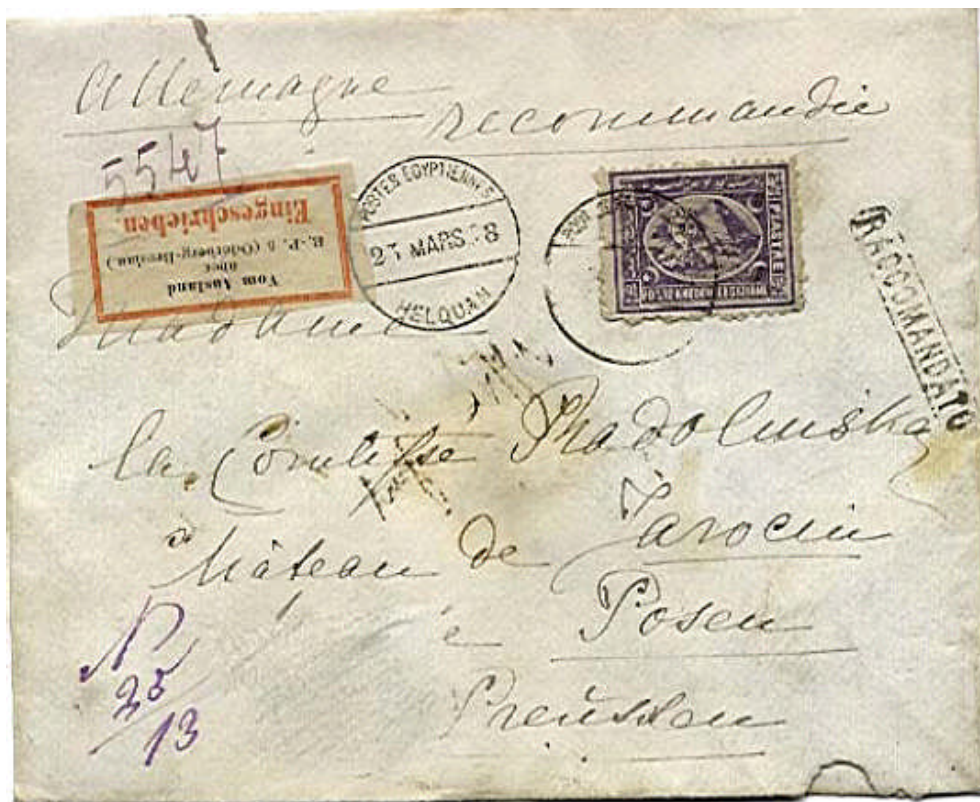 Allemagne
recommandie
5547
Vom Ausland
über
E.-P. 5 (Oderberg-Breslau)
Eingeschrieben
POSTES EGYPTIENNES
MARS
HELOUAN
POSTE KHEDEUIE EGIZIANE
RACCOMANDATO
Madame
la Comtesse Radolinska
Château de Jarocin
Posen
Preüssen
N
25/13